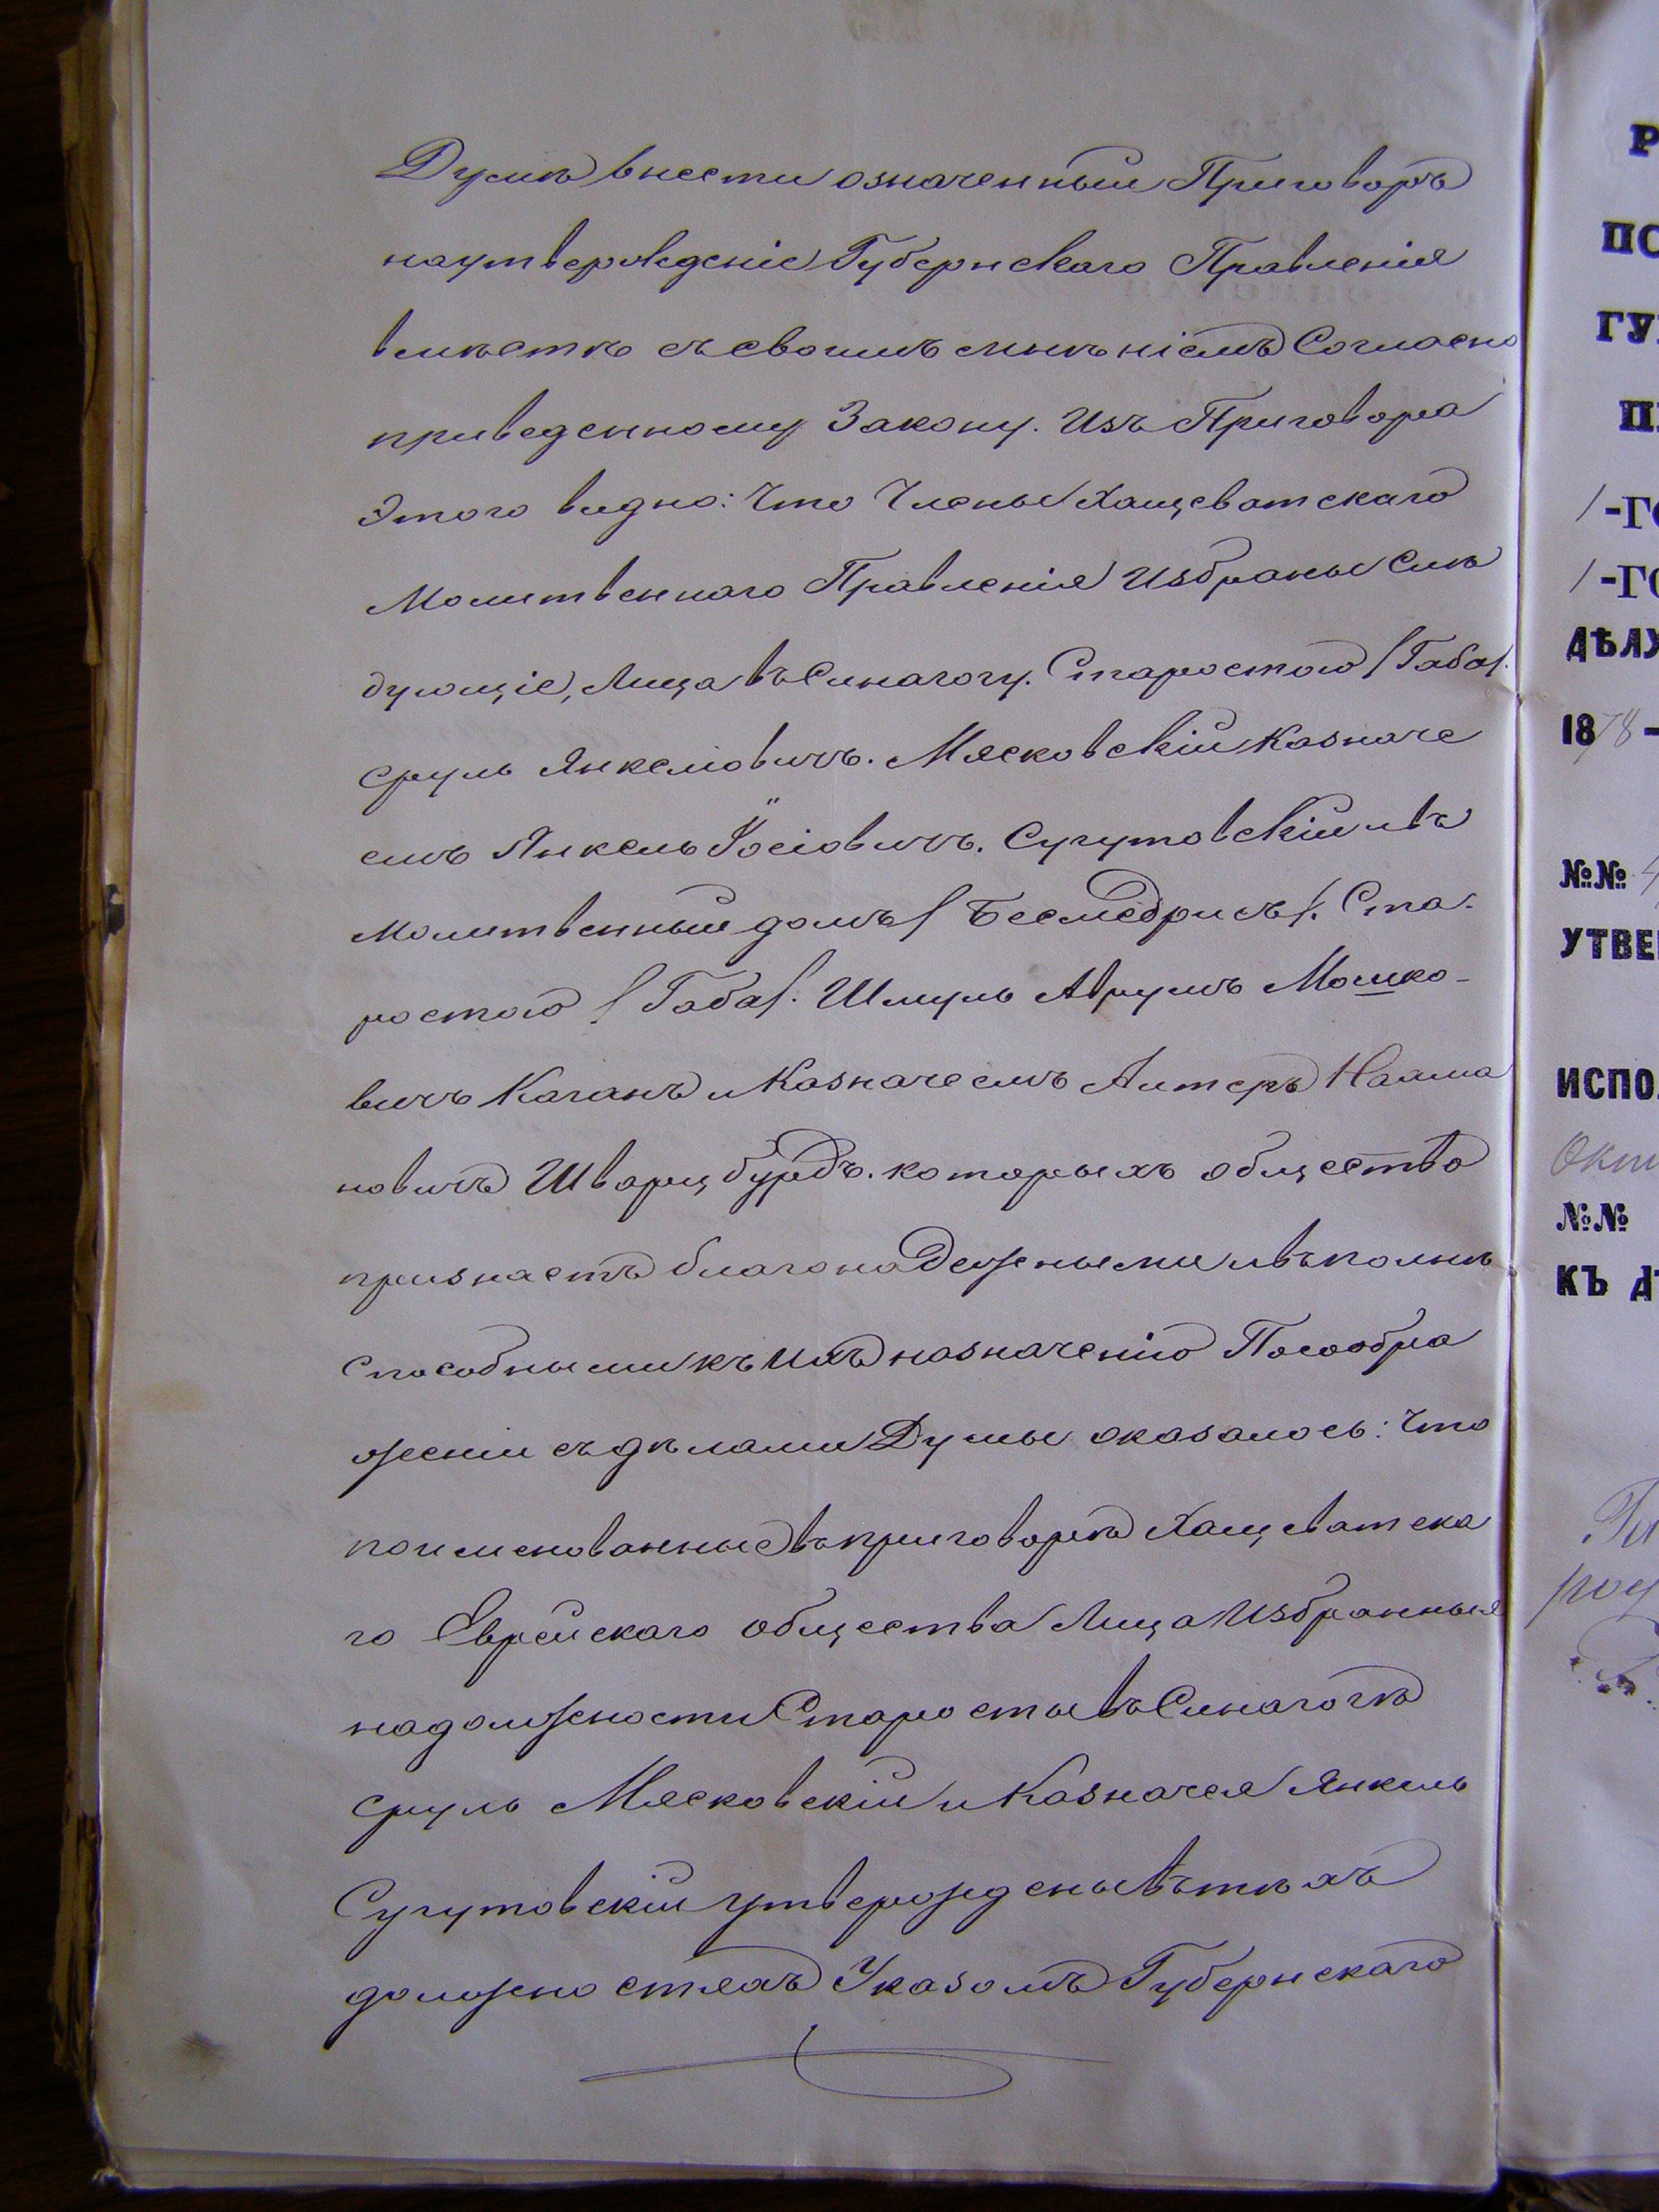 Думѣ внести означенный Приговоръ
на утвержденіе Губернскаго Правленія
вмѣстѣ съ своимъ мнѣніемъ Согласно
приведенному Закону. Изъ Приговора
Этого видно: что Члены Хащеватскаго
Молитвеннаго Правленія Избраны Слѣ
дующіе, Лица въ Синагогу. Старостою /Габа/.
Сруль Янкеліовичъ. Мясковскій Казначе
емъ Янкель Іосіовичъ. Сугутовскій и въ
молитвенный домъ / Бесмедрисъ /. Ста-
ростою / Габа/. Шмуль Аврумъ Мошко-
вичъ Каганъ и Казначеемъ Алтеръ Нахма
новичъ Шварцбурдъ. которыхъ общество
признаетъ благонадежными и въ полнѣ
способными къ ихъ назначенію По сообра
женіи съ дѣлами Думы оказалось: что
поименованные въ приговорѣ Хащеватска
го Еврейскаго общества Лица Избранныя
на должности Старосты въ Синагогѣ
Сруль Мясковскій и Казначея Янкель
Сугутовскій утверждены въ тѣхъ
должностяхъ Указомъ Губернскаго
Р
ПО
ГУ
П
/-ГО
/-ГО
ДѢЛУ
1878-
№№
УТВЕ
ИСПО
Окт
№№
КЪ Д